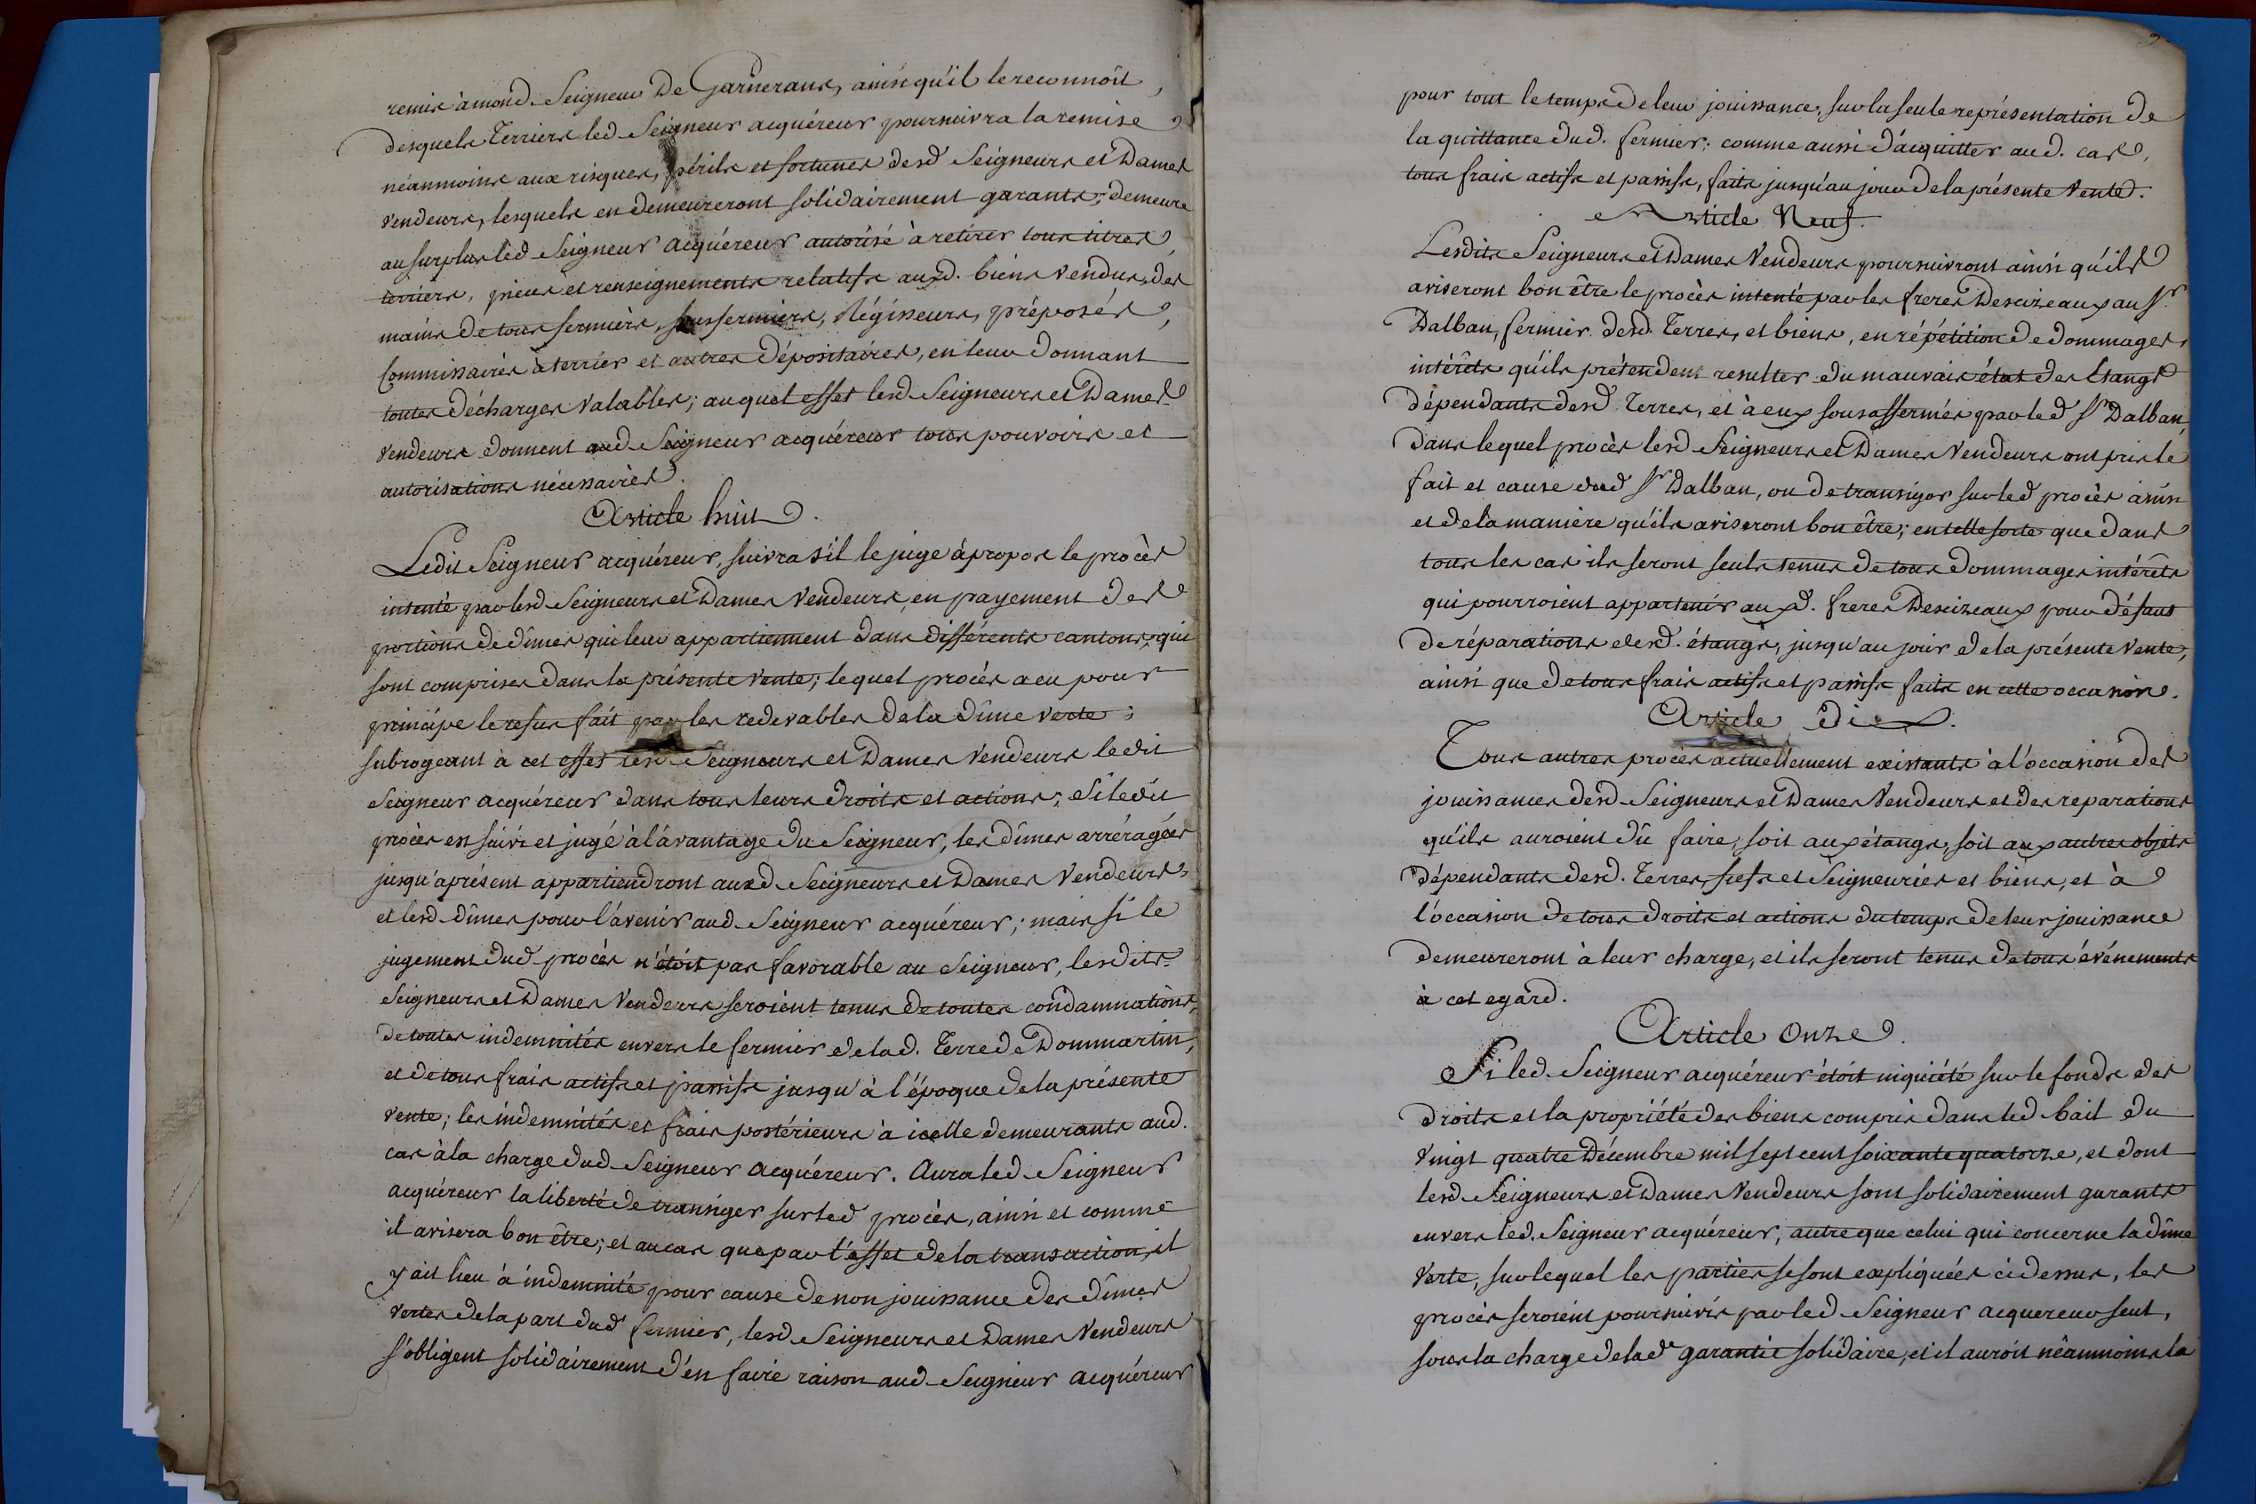 remis à mond. Seigneur De Garnerans, ainsi qu'il le reconnoît,
desquels Terriers led. Seigneur acquéreur poursuivra la remise
néanmoins aux risques, périls et fortunes desd. Seigneurs et Dames
Vendeurs, lesquels en demeureront solidairement garants; demeure
au surplus led. Seigneur acquéreur autorisé à retirer tous titres,
terriers, pieces et renseignements relatifs auxd. biens vendus, des
mains de tous fermiers, sousfermiers, Régisseurs, préposés,
Commissaires à terrier et autres dépositaires, en leur donnant
toutes décharges valables; auquel effet lesd. Seigneurs et Dames
Vendeurs donnent aud. Seigneur acquéreur tous pouvoirs et
autorisations nécessaires.
Article huit.
Ledit Seigneur acquéreur, suivra s'il le juge à propos le procès
intenté par lesd. Seigneurs et Dames Vendeurs, en payement des
portions de dîmes qui leur appartiennent dans différents cantons, qui
sont comprises dans la présente vente; lequel procès a eu pour
principe le refus fait par les redevables de la dîme verte;
subrogeant à cet effet lesd. Seigneurs et Dames Vendeurs ledit
Seigneur acquéreur dans tous leurs droits et actions; si ledit
procès est suivi et jugé à l'avantage du Seigneur, les dîmes arréragées
jusqu'aprésent appartiendront auxd. Seigneurs et Dames Vendeurs,
et lesd. dîmes pour l'avenir aud. Seigneur acquéreur; mais si le
jugement dud. procès n'étoit pas favorable au Seigneur, lesdits
Seigneurs et Dames Vendeurs seroient tenus de toutes condamnations,
de toutes indemnités envers le fermier de lad. Terre de Dommartin,
et de tous frais actifs et passifs jusqu'à l'époque de la présente
vente; les indemnités et frais postérieurs à icelle demeurants aud.
cas à la charge dud. Seigneur acquéreur. Aura led. Seigneur
acquéreur la liberté de transiger sur led. procès, ainsi et comme
il avisera bon être; et au cas que par l'effet de la transaction, il
y ait lieu à indemnité pour cause de non jouissance des dîmes
vertes de la part dud. fermier, lesd. Seigneurs et Dames Vendeurs
s'obligent solidairement d'en faire raison aud. Seigneur acquéreur
pour tout le temps de leur jouissance, sur la seule représentation de
la quittance dud. fermier; comme aussi d'acquitter aud. cas,
tous frais actifs et passifs, faits jusqu'au jour de la présente Vente.
Article Neuf.
Lesdits Seigneurs et Dames Vendeurs poursuivront ainsi qu'ils
aviseront bon être le procès intenté par les freres Desvizeaux au Sr.
Dalban, fermier desd. Terres, et biens, en répétition de dommages,
intérêts qu'ils prétendent resulter du mauvais état des Etangs
dépendants desd. Terres, et à eux sousaffermés par led. Sr. Dalban,
dans lequel procès lesd. Seigneurs et Dames Vendeurs ont pris le
fait et cause dud. Sr. Dalban, ou de transiger sur led. procès ainsi
et de la maniere qu'ils aviseront bon être; en telle sorte que dans
tous les cas ils seront seuls tenus de tous dommages intérêts
qui pourroient appartenir auxd. freres Desvizeaux pour défaut
de réparations desd. étangs, jusqu'au jour de la présente Vente,
ainsi que de tous frais actifs et passifs faits en cette occasion.
Article Dix.
Tous autres procès actuellement existants à l'occasion des
jouissances desd. Seigneurs et Dames Vendeurs et des reparations
qu'ils auroient dû faire, soit aux étangs, soit aux autres objets
dépendants desd. Terres, fiefs et Seigneuries et biens, et à
l'occasion de tous droits et actions du temps de leur jouissance
demeureront à leur charge, et ils seront tenus de tous événements
à cet egard.
Article Onze.
Si led. Seigneur acquéreur étoit inquiété sur le fonds des
droits et la propriété des biens compris dans led. bail du
Vingt quatre Décembre mil sept cent soixante quatorze, et dont
lesd. Seigneurs et Dames Vendeurs sont solidairement garants
envers led. Seigneur acquéreur, autre que celui qui concerne la dîme
Verte, sur lequel les parties se sont expliquées ci dessus, les
procès seroient poursuivis par led. Seigneur acquereur seul,
sous la charge de lad. garantie solidaire, et il auroit néanmoins la